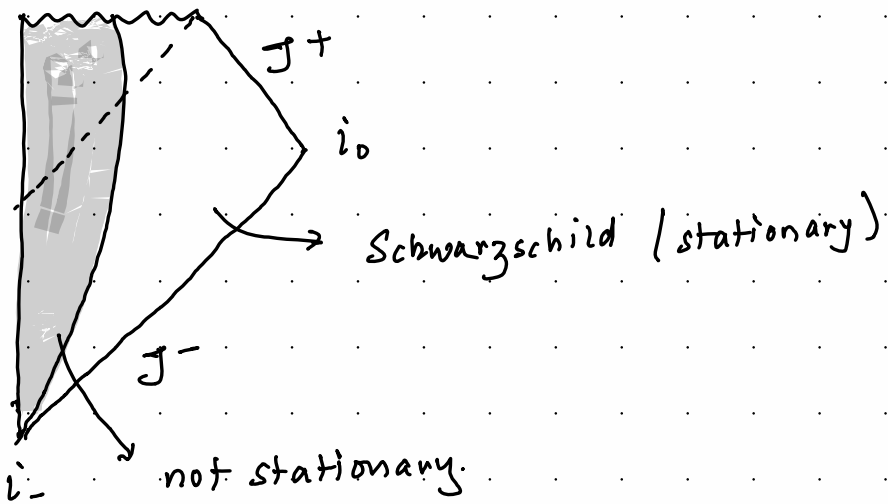 J+
i0
Schwarzschild (stationary)
J-
not stationary.
i-